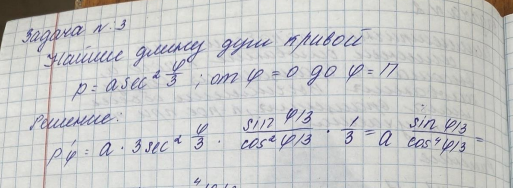 Задача N. 3
Найти длину дуги кривой
ρ = a sec² φ/3 ; от φ = 0 до φ = П
Решение:
ρ'φ = a · 3 sec² φ/3 · sin φ/3 / cos² φ/3 · 1/3 = a sin φ/3 / cos⁴ φ/3 =